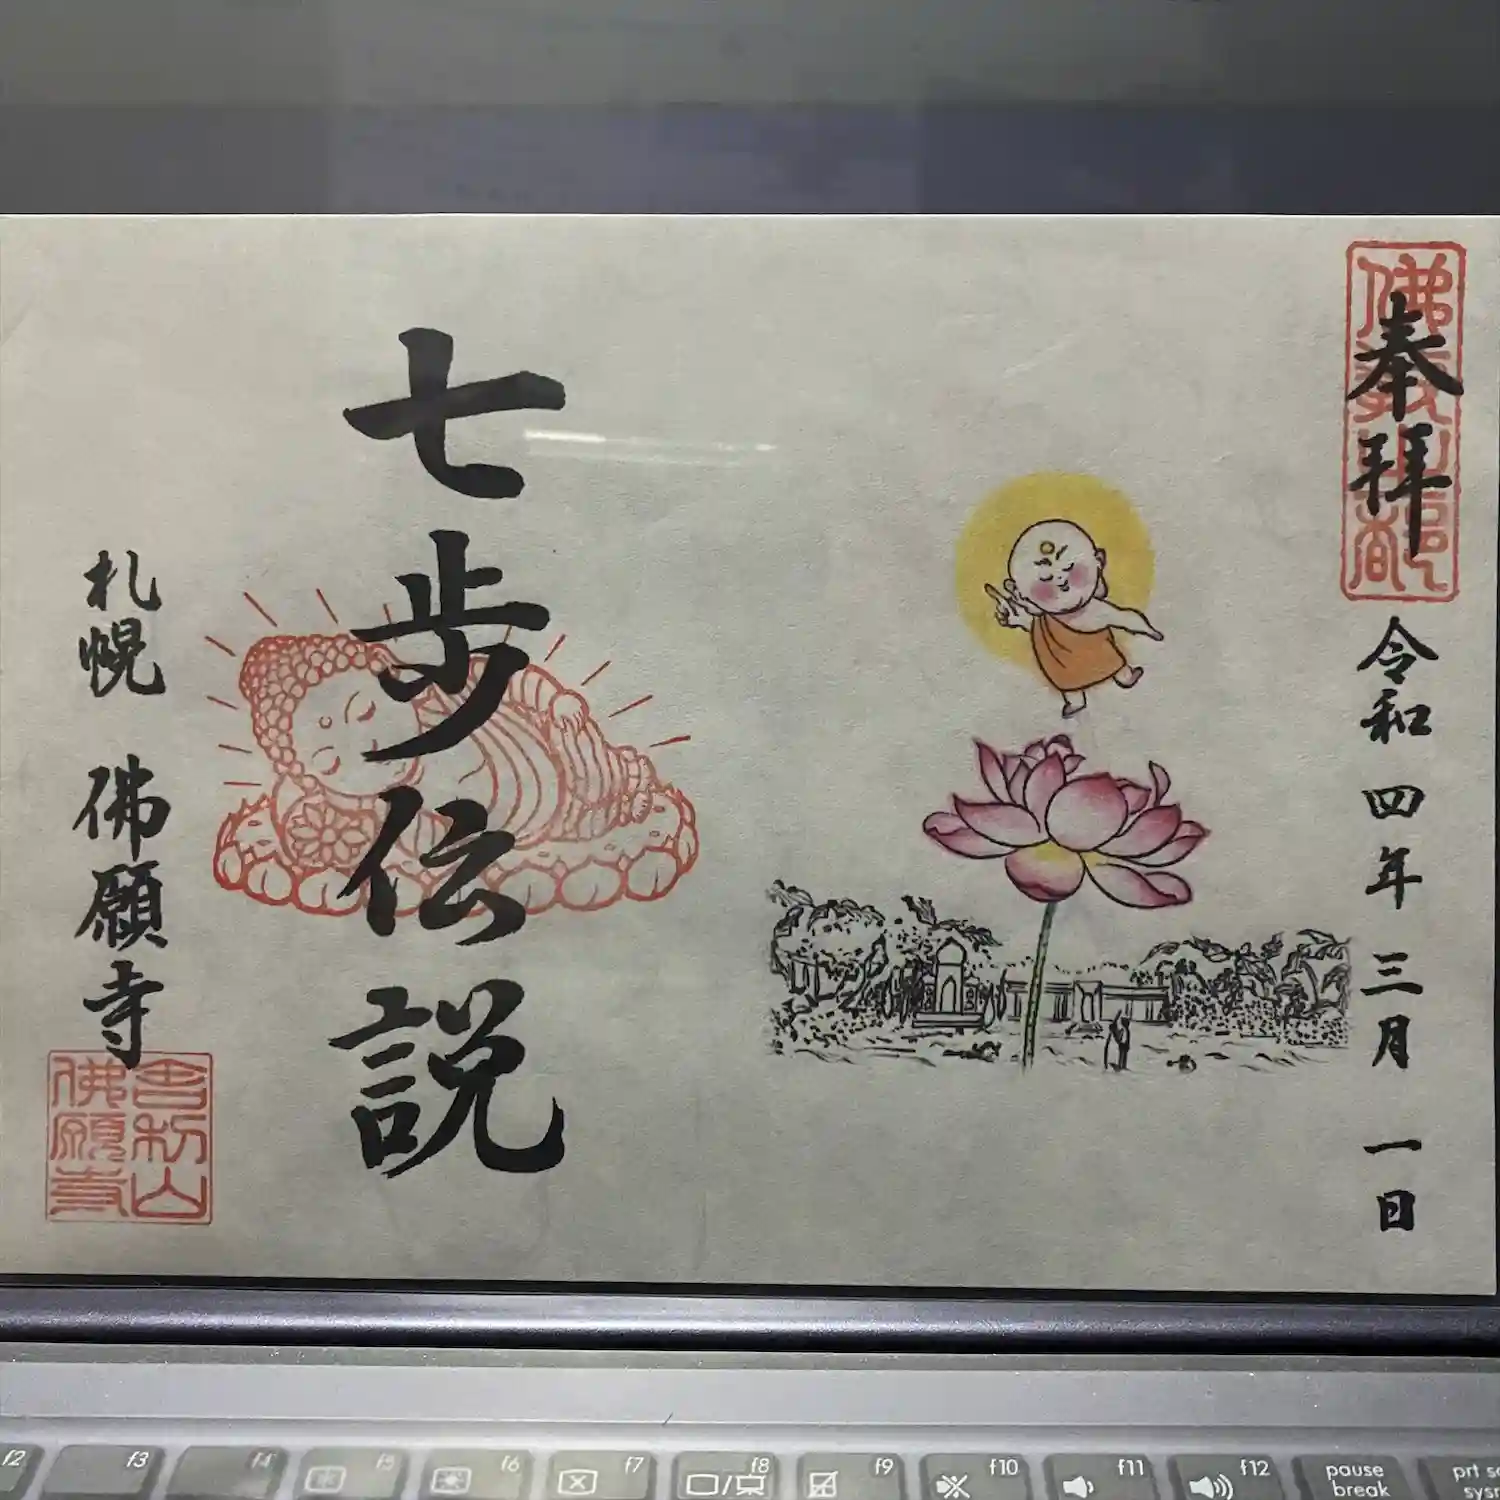 奉拝
令和四年三月一日
七歩伝説
札幌 佛願寺
舎利山
佛願寺
f2 f3 f4 f5 f6 f7 f8 f9 f10 f11 f12 pause break